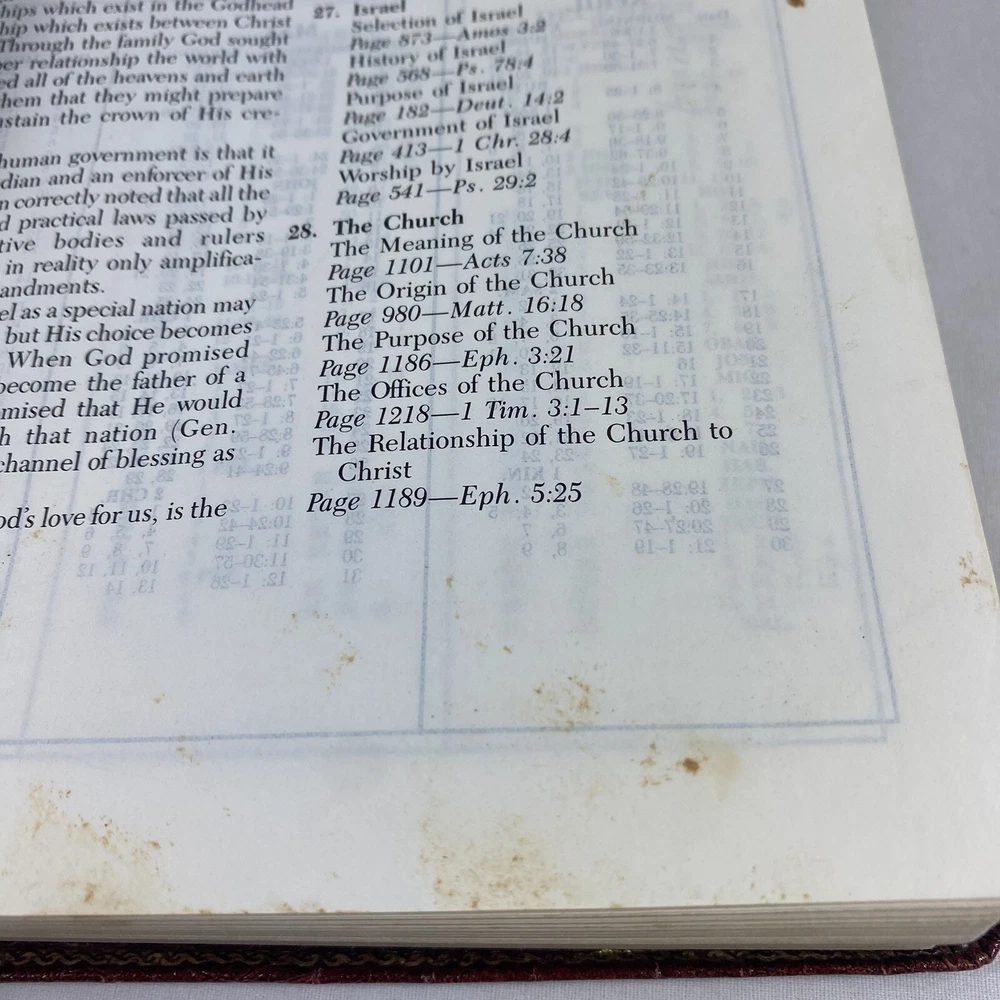 hips which exist in the Godhead
hip which exists between Christ
Through the family God sought
er relationship the world with
ed all of the heavens and earth
hem that they might prepare
stain the crown of His cre-
human government is that it
dian and an enforcer of His
n correctly noted that all the
d practical laws passed by
tive bodies and rulers
in reality only amplifica-
andments.
el as a special nation may
but His choice becomes
When God promised
become the father of a
mised that He would
h that nation (Gen.
channel of blessing as
od's love for us, is the
27. Israel
Selection of Israel
Page 873—Amos 3:2
History of Israel
Page 568—Ps. 78:4
Purpose of Israel
Page 182—Deut. 14:2
Government of Israel
Page 413—1 Chr. 28:4
Worship by Israel
Page 541—Ps. 29:2
28. The Church
The Meaning of the Church
Page 1101—Acts 7:38
The Origin of the Church
Page 980—Matt. 16:18
The Purpose of the Church
Page 1186—Eph. 3:21
The Offices of the Church
Page 1218—1 Tim. 3:1–13
The Relationship of the Church to
Christ
Page 1189—Eph. 5:25